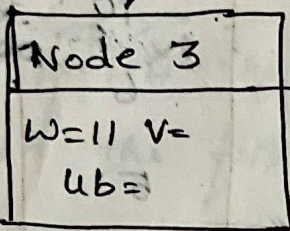 Node 3
W=11 V=
Ub=